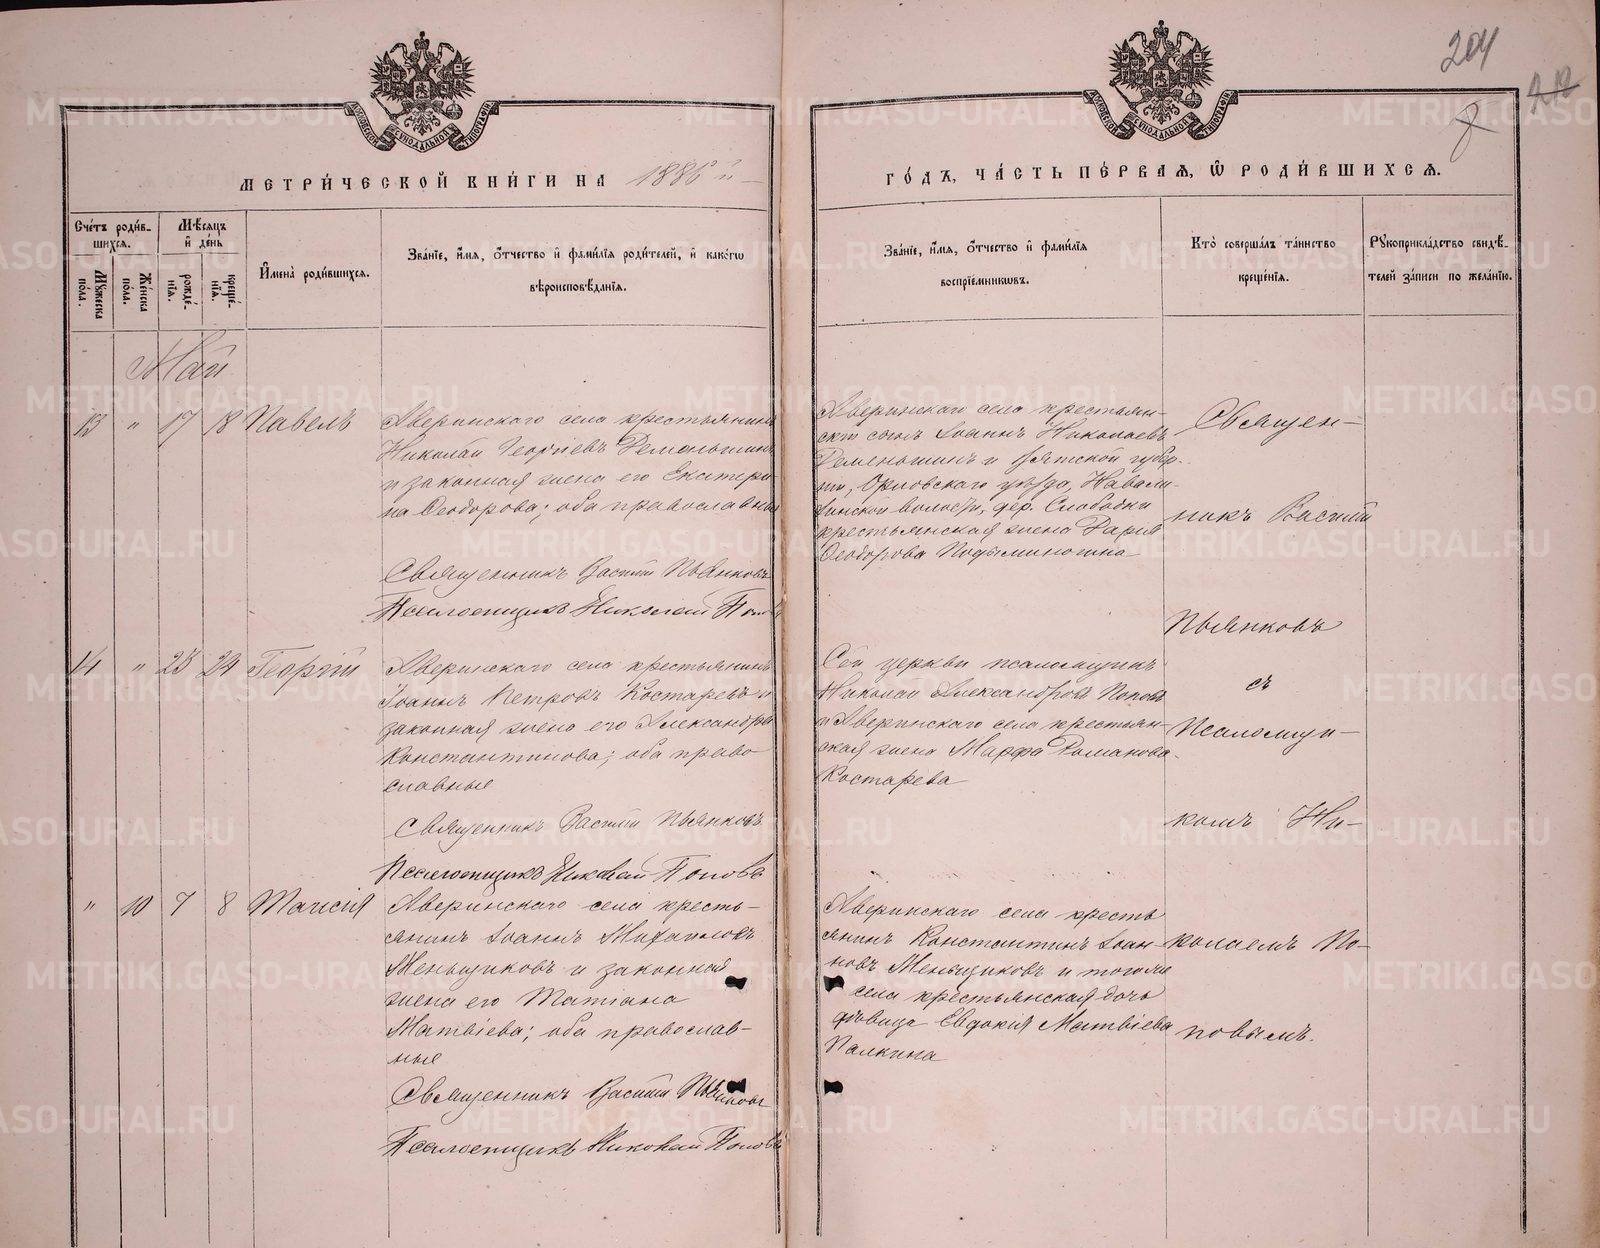 204
МЕТРИЧЕСКОЙ КНИГИ НА 1886 й
ГОДЪ, ЧАСТЬ ПЕРВАЯ, Ѡ РОДИВШИХСЯ.
Счетъ родившихся.
Мужеска пола.
Женска пола.
Мѣсяцъ и день
рожденія.
крещенія.
Имена родившихся.
Званіе, имя, отчество и фамилія родителей, и какогѡ
вѣроисповѣданія.
Званіе, имя, отчество и фамилія
воспріемникѡвъ.
Кто совершалъ таинство
крещенія.
Рукоприкладство свидѣ-
телей записи по желанію.
Май
13 " 17 18 Павелъ
Аверинскаго села крестьянинъ
Николай Георгіевъ Деменьшинъ
и законная жена его Екатери-
на Ѳеодорова; оба православные
Священникъ Василій Пьянковъ
Псаломщикъ Николай Поповъ
Аверинскаго села крестьян-
скій сынъ Іоаннъ Николаевъ
Деменьшинъ и Вятской губер-
ніи, Орловскаго уѣзда,
волости, дер. Слободки
крестьянская жена Дарія
Ѳеодорова
14 " 23 24 Георгій
Аверинскаго села крестьянинъ
Іоаннъ Петровъ Костаревъ и
законная жена его Александра
Константинова; оба право
славные
Священникъ Василій Пьянковъ
Псаломщикъ Николай Поповъ
Сей церкви псаломщикъ
Николай Александровъ Поповъ
и Аверинскаго села крестьян-
ская жена Марфа Романова
Костарева
" 10 7 8 Таисія
Аверинскаго села кресть-
янинъ Іоаннъ Михайловъ
Меньщиковъ и законная
жена его Татіана
Матвіева; оба православ-
ные
Священникъ Василій Пьянковъ
Псаломщикъ Николай Поповъ
Аверинскаго села кресть
янинъ Константинъ Іоан-
новъ Меньщиковъ и тогоже
села крестьянская дочь
дѣвица Евдокія Матвіева
Палкина
Священ-
никъ Василій
Пьянковъ
съ
Псаломщи-
комъ Ни-
колаемъ По-
повымъ.
METRIKI.GASO-URAL.RU